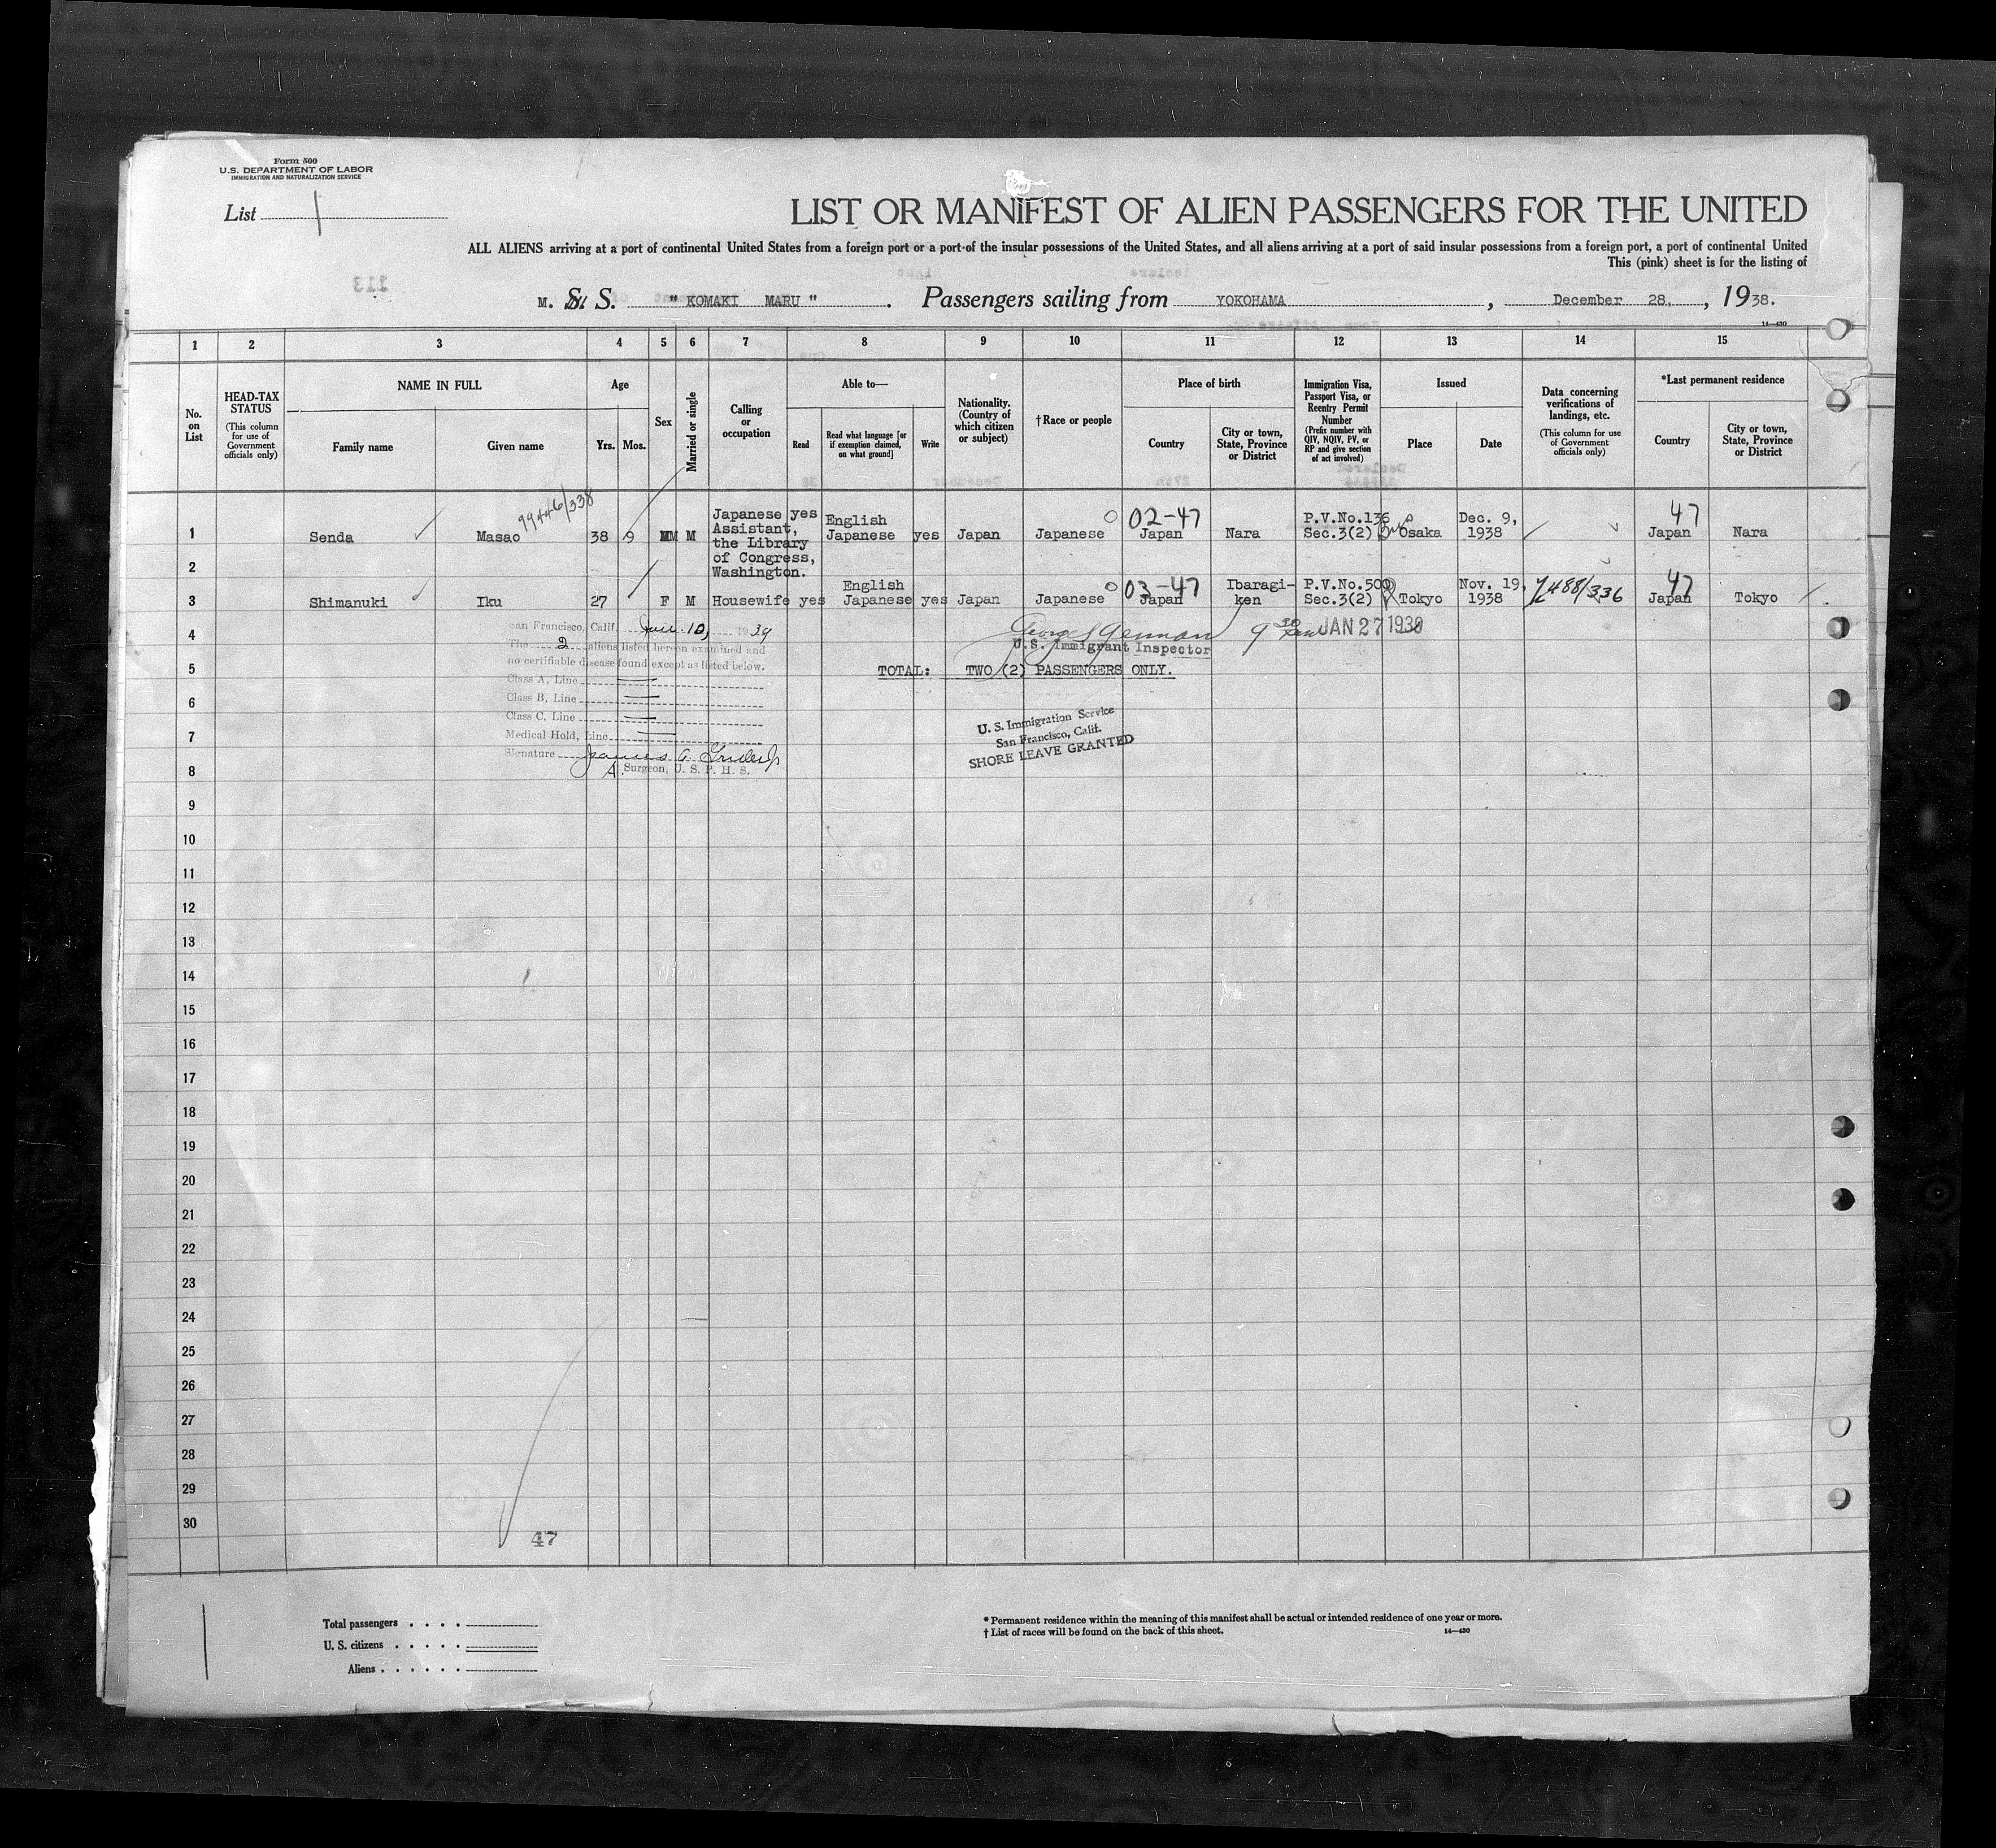 Form 500
U.S. DEPARTMENT OF LABOR
IMMIGRATION AND NATURALIZATION SERVICE
List 1
LIST OR MANIFEST OF ALIEN PASSENGERS FOR THE UNITED
ALL ALIENS arriving at a port of continental United States from a foreign port or a port of the insular possessions of the United States, and all aliens arriving at a port of said insular possessions from a foreign port, a port of continental United
This (pink) sheet is for the listing of
113
M. S. S. " KOMAKI MARU " . Passengers sailing from YOKOHAMA , December 28, , 1938.
14—430
1 2 3 4 5 6 7 8 9 10 11 12 13 14 15
No. on List
HEAD-TAX STATUS (This column for use of Government officials only)
NAME IN FULL
Family name
Given name
Age
Yrs. Mos.
Sex
Married or single
Calling or occupation
Able to—
Read
Read what language [or if exemption claimed, on what ground]
Write
Nationality. (Country of which citizen or subject)
† Race or people
Place of birth
Country
City or town, State, Province or District
Immigration Visa, Passport Visa, or Reentry Permit Number (Prefix number with QIV, NQIV, PV, or RP and give section of act involved)
Issued
Place
Date
Data concerning verifications of landings, etc. (This column for use of Government officials only)
*Last permanent residence
Country
City or town, State, Province or District
99446/338
02-47
47
1 Senda Masao 38 9 M M Japanese Assistant, the Library of Congress, Washington. yes English Japanese yes Japan Japanese Japan Nara P.V.No.136 Sec.3(2) Osaka Dec. 9, 1938 Japan Nara
2
03-47
47
3 Shimanuki Iku 27 F M Housewife yes English Japanese yes Japan Japanese Japan Ibaragi-ken P.V.No.500 Sec.3(2) Tokyo Nov. 19, 1938 7488/336 Japan Tokyo
4
San Francisco, Calif. Jan. 10, 1939
The 2 aliens listed hereon examined and
no certifiable disease found except as listed below.
Class A, Line
Class B, Line
Class C, Line
Medical Hold, Line
Signature James
A. Surgeon, U. S. P. H. S.
U.S. Immigrant Inspector
JAN 27 1939
5
TOTAL: TWO (2) PASSENGERS ONLY.
6
U. S. Immigration Service
San Francisco, Calif.
SHORE LEAVE GRANTED
7
8
9
10
11
12
13
14
15
16
17
18
19
20
21
22
23
24
25
26
27
28
29
30
47
Total passengers . . . .
U. S. citizens . . . . .
Aliens . . . . . .
* Permanent residence within the meaning of this manifest shall be actual or intended residence of one year or more.
† List of races will be found on the back of this sheet.
14—430